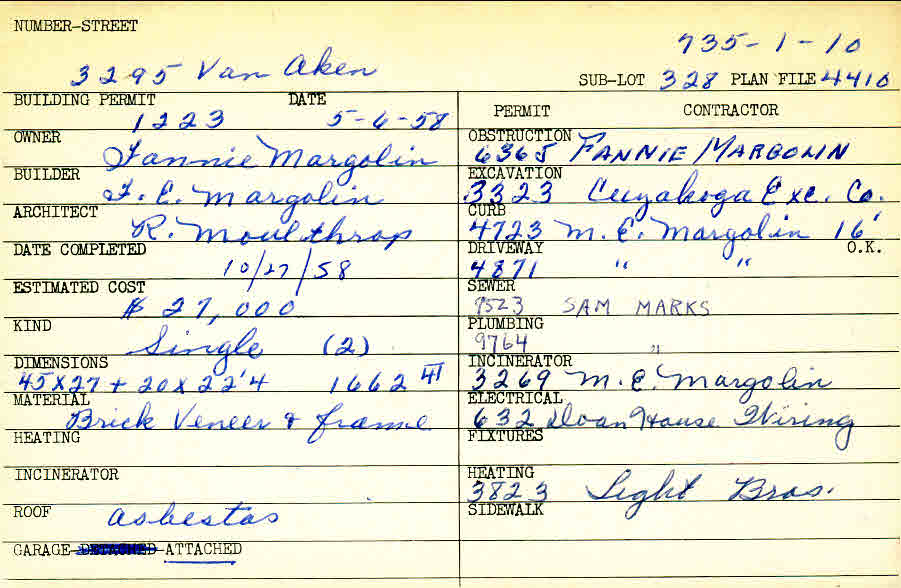 NUMBER-STREET
735-1-10
3295 Van Aken
SUB-LOT 328 PLAN FILE 4410
BUILDING PERMIT DATE
1223 5-6-58
OWNER
Fannie Margolin
BUILDER
F. E. Margolin
ARCHITECT
R. Moulthrop
DATE COMPLETED
10/27/58
ESTIMATED COST
$ 27,000
KIND
Single (2)
DIMENSIONS
45x27 + 20x22'4 1662
MATERIAL
Brick Veneer & frame
HEATING
INCINERATOR
ROOF asbestos
GARAGE-DETACHED-ATTACHED
PERMIT CONTRACTOR
OBSTRUCTION
6365 FANNIE MARGOLIN
EXCAVATION
3323 Cuyahoga Exc. Co.
CURB
4723 M. E. Margolin 16'
DRIVEWAY O.K.
4871 " "
SEWER
9523 SAM MARKS
PLUMBING
9764 "
INCINERATOR
3269 M. E. Margolin
ELECTRICAL
632 Doan House Wiring
FIXTURES
HEATING
3823 Light Bros.
SIDEWALK